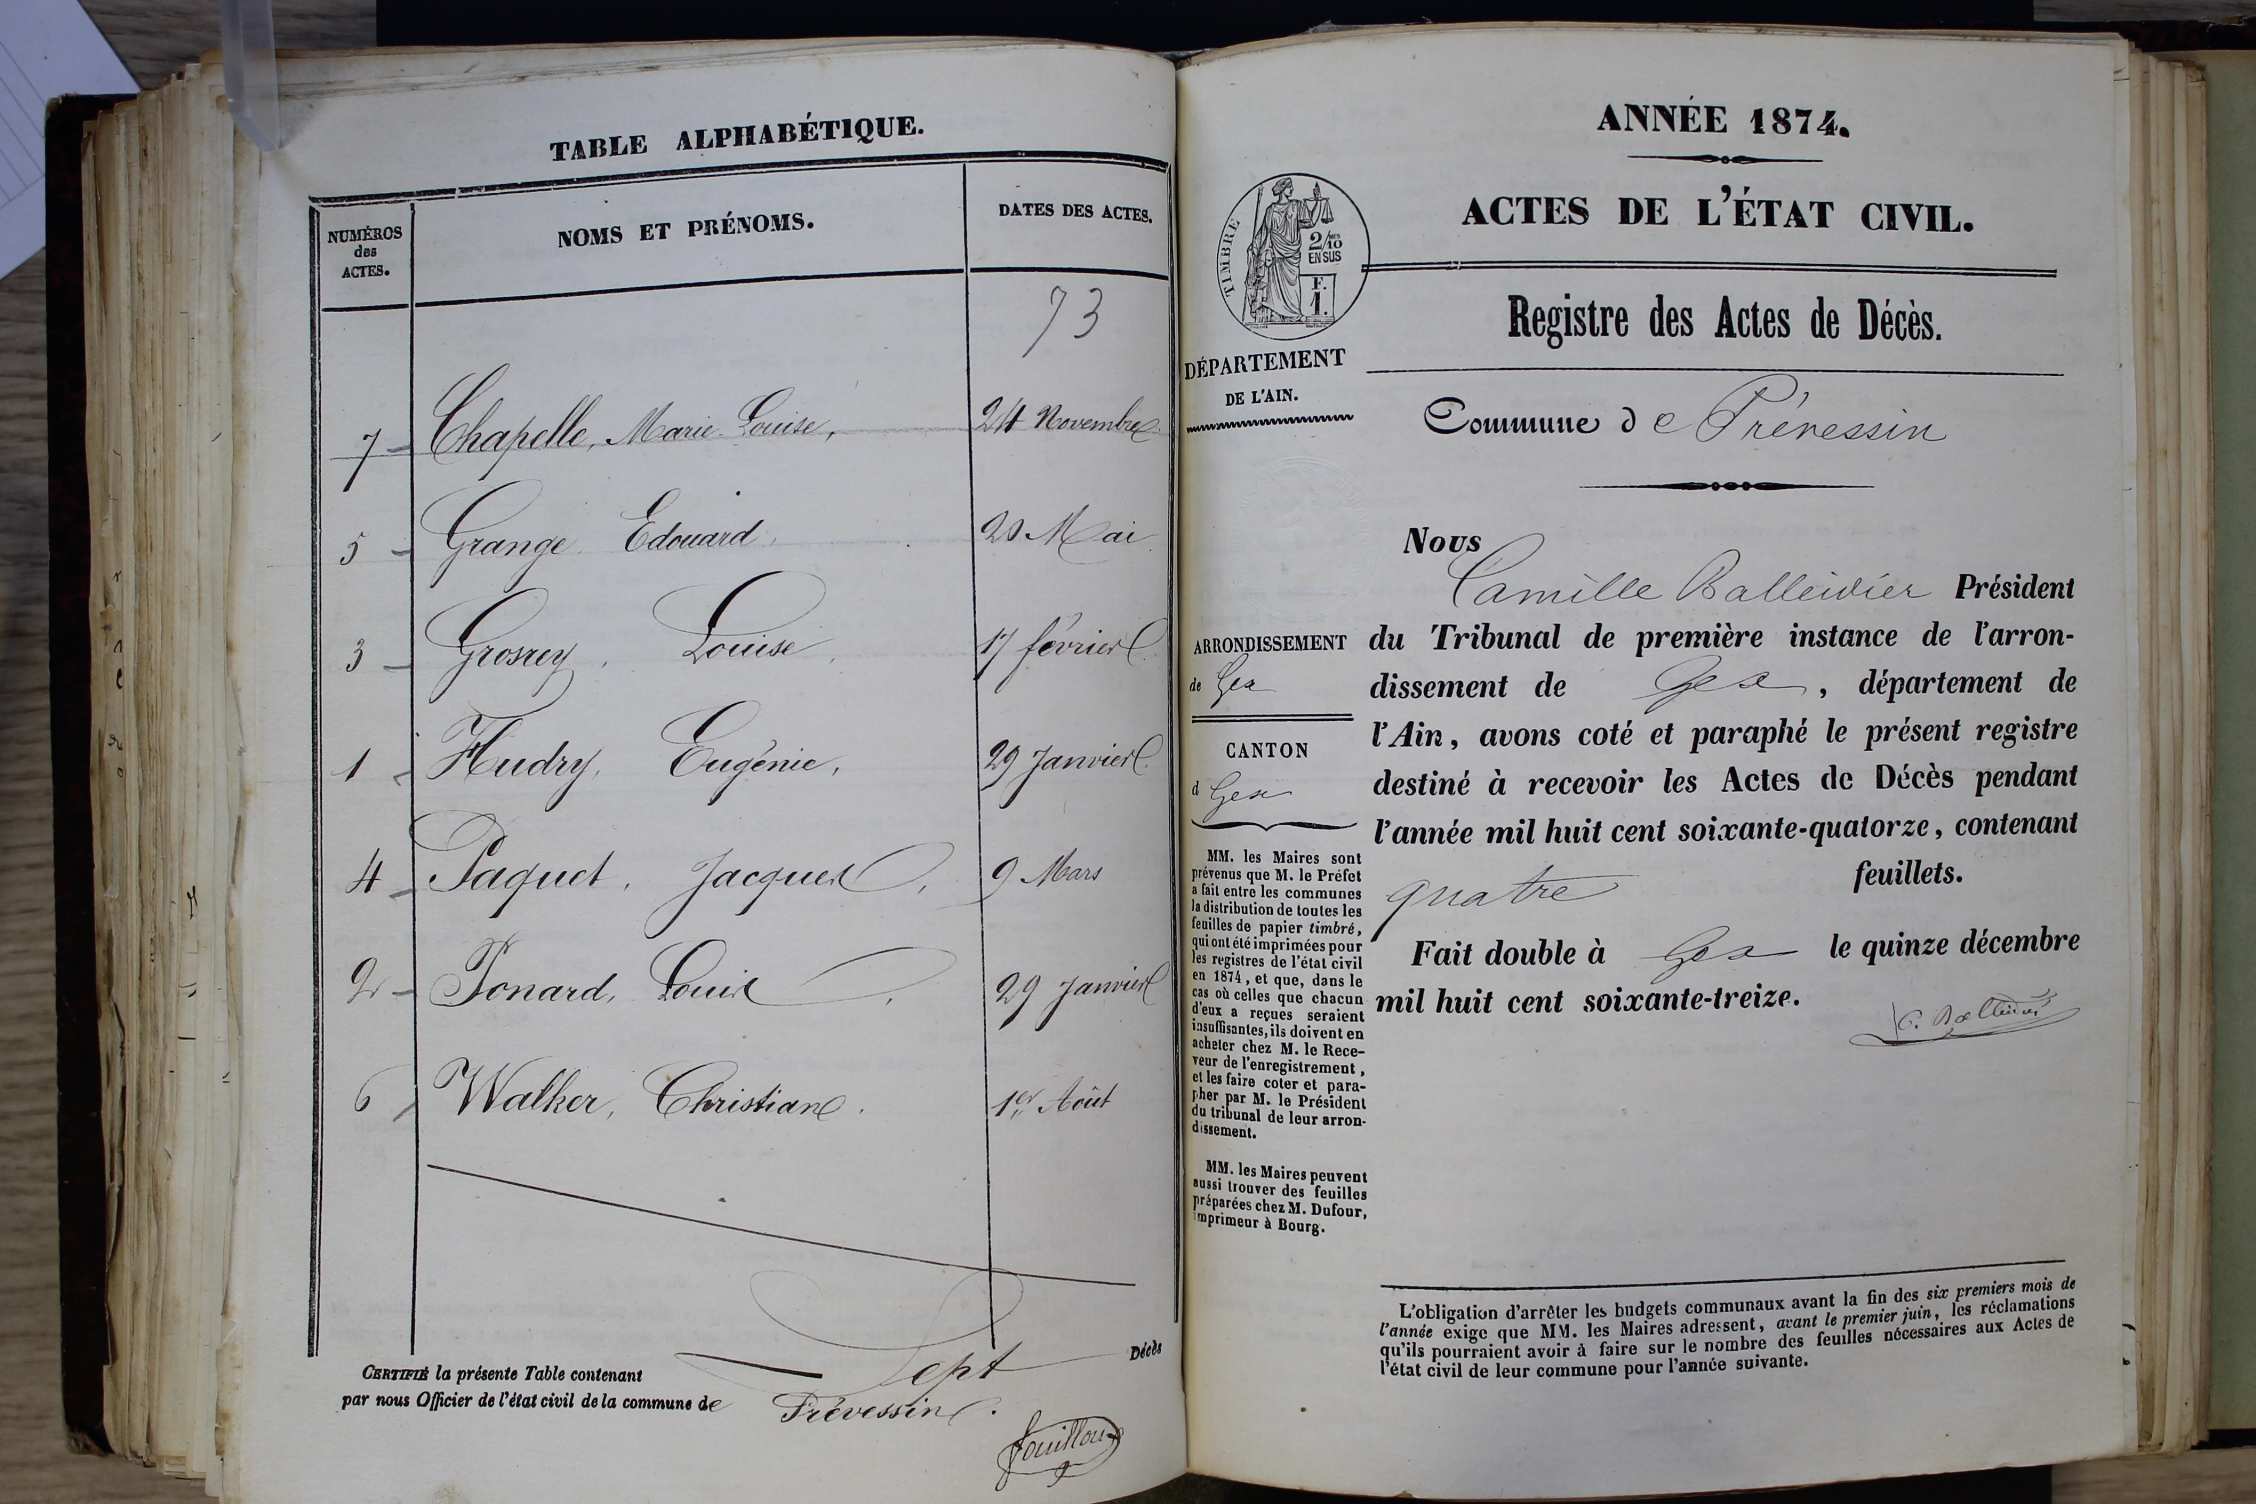 TABLE ALPHABÉTIQUE.
NUMÉROS des ACTES.
NOMS ET PRÉNOMS.
DATES DES ACTES.
73
7 Chapelle, Marie Louise, 24 Novembre
5 Grange Edouard, 20 Mai
3 Grosrey, Louise, 17 février
1 Hudry, Eugénie, 29 Janvier
4 Paquet, Jacques, 9 Mars
2 Ponard, Louis, 29 Janvier
6 Walker, Christian. 1er Août
CERTIFIÉ la présente Table contenant Sept Décès
par nous Officier de l'état civil de la commune de Prévessin.
fouilloux
ANNÉE 1874.
ACTES DE L'ÉTAT CIVIL.
TIMBRE
2/10
EN SUS
F.
1.
DÉPARTEMENT
DE L'AIN.
Registre des Actes de Décès.
Commune de Prévessin
Nous
Camille Balleidier Président
du Tribunal de première instance de l'arron-
dissement de Gex, département de
l'Ain, avons coté et paraphé le présent registre
destiné à recevoir les Actes de Décès pendant
l'année mil huit cent soixante-quatorze, contenant
quatre feuillets.
Fait double à Gex le quinze décembre
mil huit cent soixante-treize.
C. Balleidier
ARRONDISSEMENT
de Gex
CANTON
d Gex
MM. les Maires sont
prévenus que M. le Préfet
a fait entre les communes
la distribution de toutes les
feuilles de papier timbré,
qui ont été imprimées pour
les registres de l'état civil
en 1874, et que, dans le
cas où celles que chacun
d'eux a reçues seraient
insuffisantes, ils doivent en
acheter chez M. le Rece-
veur de l'enregistrement,
et les faire coter et para-
pher par M. le Président
du tribunal de leur arron-
dissement.
MM. les Maires peuvent
aussi trouver des feuilles
préparées chez M. Dufour,
imprimeur à Bourg.
L'obligation d'arrêter les budgets communaux avant la fin des six premiers mois de
l'année exige que MM. les Maires adressent, avant le premier juin, les réclamations
qu'ils pourraient avoir à faire sur le nombre des feuilles nécessaires aux Actes de
l'état civil de leur commune pour l'année suivante.